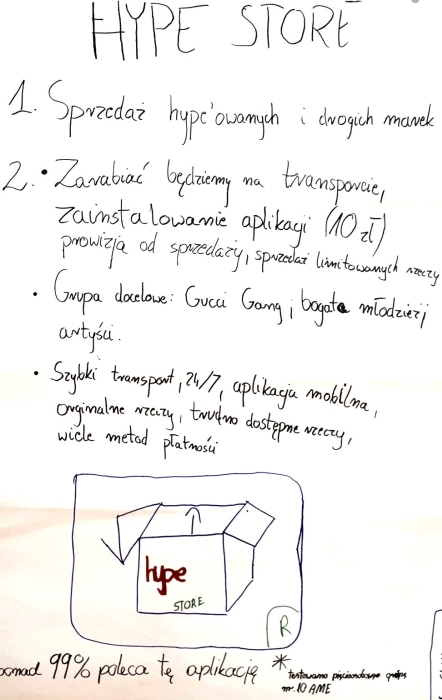 HYPE STORE
1. Sprzedaż hype'owanych i drogich marek
2. • Zarabiać będziemy na transporcie,
zainstalowanie aplikacji (10 zł)
prowizja od sprzedaży, sprzedaż limitowanych rzeczy
• Grupa docelowe: Gucci Gang, bogata młodzież i
artyści.
• Szybki transport, 24/7, aplikacja mobilna,
orginalne rzeczy, trudno dostępne rzeczy,
wiele metod płatności
hype
STORE
R
ponad 99% poleca tę aplikację *
testowano pięcioosobowe
nr. 10 AME